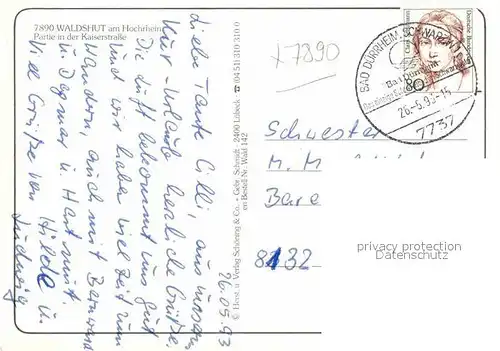 7890 WALDSHUT am Hochrhein
Partie in der Kaiserstraße
26.05.93
Liebe Tante Cilli, aus unserem
Kur Urlaub herzliche Grüße.
Die Luft bekommt uns gut
und wir haben viel Zeit zum
Wandern, auch mit
u. Dagmar u. Horst mit.
Viele Grüße von Hilde u.
Ludwig
© Horst u. Verlag Schöning & Co. · Gebr. Schmidt · 2400 Lübeck · ☎ (04 51) 310 310 0
Bestell-Nr. Wald 142
+7890
BAD DÜRRHEIM-SCHWARZW
Bad Dürrheim
80
26.-5.93-15
7737
Deutsche Bundes
Schwester
M. M.
8132
privacy protection
VERALDI